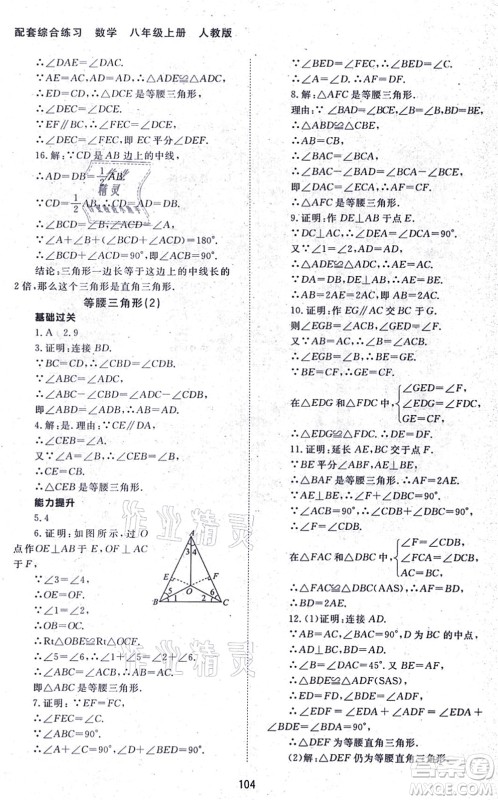 配套综合练习 数学 八年级上册 人教版
∴∠DAE=∠ADE.
∵AE=AC,AD=AD,
∴△ADE≌△ADC.
∴ED=CD.∴△DEC是等腰三角形.
∴∠DEC=∠DCE.
∵EF∥BC,∴∠FEC=∠DCE.
∴∠DEC=∠FEC.
16.解:∵CD是AB边上的中线,
∴AD=BD=1/2AB.
∵CD=1/2AB,
∴CD=AD=BD.
∴∠A=∠ACD,∠B=∠BCD.
∵∠A+∠B+∠BCD+∠ACD=180°.
∴∠BCD+∠ACD=90°,即∠ACB=90°.
结论:三角形一边长等于这边上的中线长的
2倍,那么这个三角形是直角三角形.
等腰三角形(2)
基础过关
1.A 2.9
3.证明:连接BD.
∵BC=CD,∴∠CBD=∠CDB.
∵∠ABC=∠ADC,
∴∠ABD=∠ADB.∴AB=AD,
即△ABD是等腰三角形.
4.解:是.理由:∵CE∥AB,
∴∠A=∠ACE,∠B=∠ECD.
∵∠ACE=∠ECD,
∴∠A=∠B.
∴△ABC是等腰三角形.
能力提升
5.4
6.证明:如图所示,过O
点作OE⊥AB于E,OF⊥AC
于F.
∵∠3=∠4,
∴OE=OF.
∵∠1=∠2,
∴OB=OC.
∴Rt△OBE≌Rt△OCF.
∴∠5=∠6.
∴∠1+∠5=∠2+∠6.
即△ABC是等腰三角形.
7.证明:∵EF=FC,∴∠1=∠C.
∵∠1=∠2,∴∠2=∠C.
∵∠B=90°,
∴∠A+∠C=90°.∴∠A+∠2=90°.
A
B
C
E
F
O
3 4
5
1
2
6
8.解:△AFC是等腰三角形.
理由:∵BAD=∠BCE,∵BD=BE,
∠B=∠B,∴△BAD≌△BCE.
∴BA=BC.∴∠BAC=∠BCA.
∴∠FAC=∠FCA.
∴△AFC是等腰三角形.
9.证明:作DE⊥AB于点E.
∵∠1=∠2,AD=AD,
∴△ADE≌△ADC.
∴∠AED=∠C=90°.
∴AD=BD.
10.作EG∥AC交BC于点G.
∴∠DEG=∠F,∠EGB=∠ACB.
∵AB=AC,∴∠B=∠ACB.
∴∠EGB=∠B.∴BE=GE.
∵BE=CF,∴GE=CF.
在△EDG和△FDC中{∠GED=∠F,
∠EDG=∠FDC,
GE=CF,
∴△EDG≌△FDC.∴DE=DF.
11.证明:延长AE交BC于点F.
∵∠ABE=∠FBE,
AE⊥BE,
∴∠BAE=∠F.
∴AB=BF.∴AE=EF.∴AF=2AE.
∵∠ACB=90°,
∴∠F=∠CDB.
在△FAC和△DBC中{∠F=∠CDB,
∠ACF=∠BCD,
AC=BC,
∴△FAC≌△DBC(AAS).
∴AF=BD.∴BD=2AE.
12.(1)证明:连接AD.
∵∠BAC=90°,AB=AC,
∴∠DAC=45°.又∵BD=DC,
∴△BDE≌△ADF(SAS).
∴DE=DF,∠BDE=∠ADF.
∴∠EDF=∠EDA+∠ADF=∠EDA
+∠BDE=∠BDA=90°.
∴△DEF为等腰直角三角形.
(2)解:△DEF仍为等腰直角三角形.
104